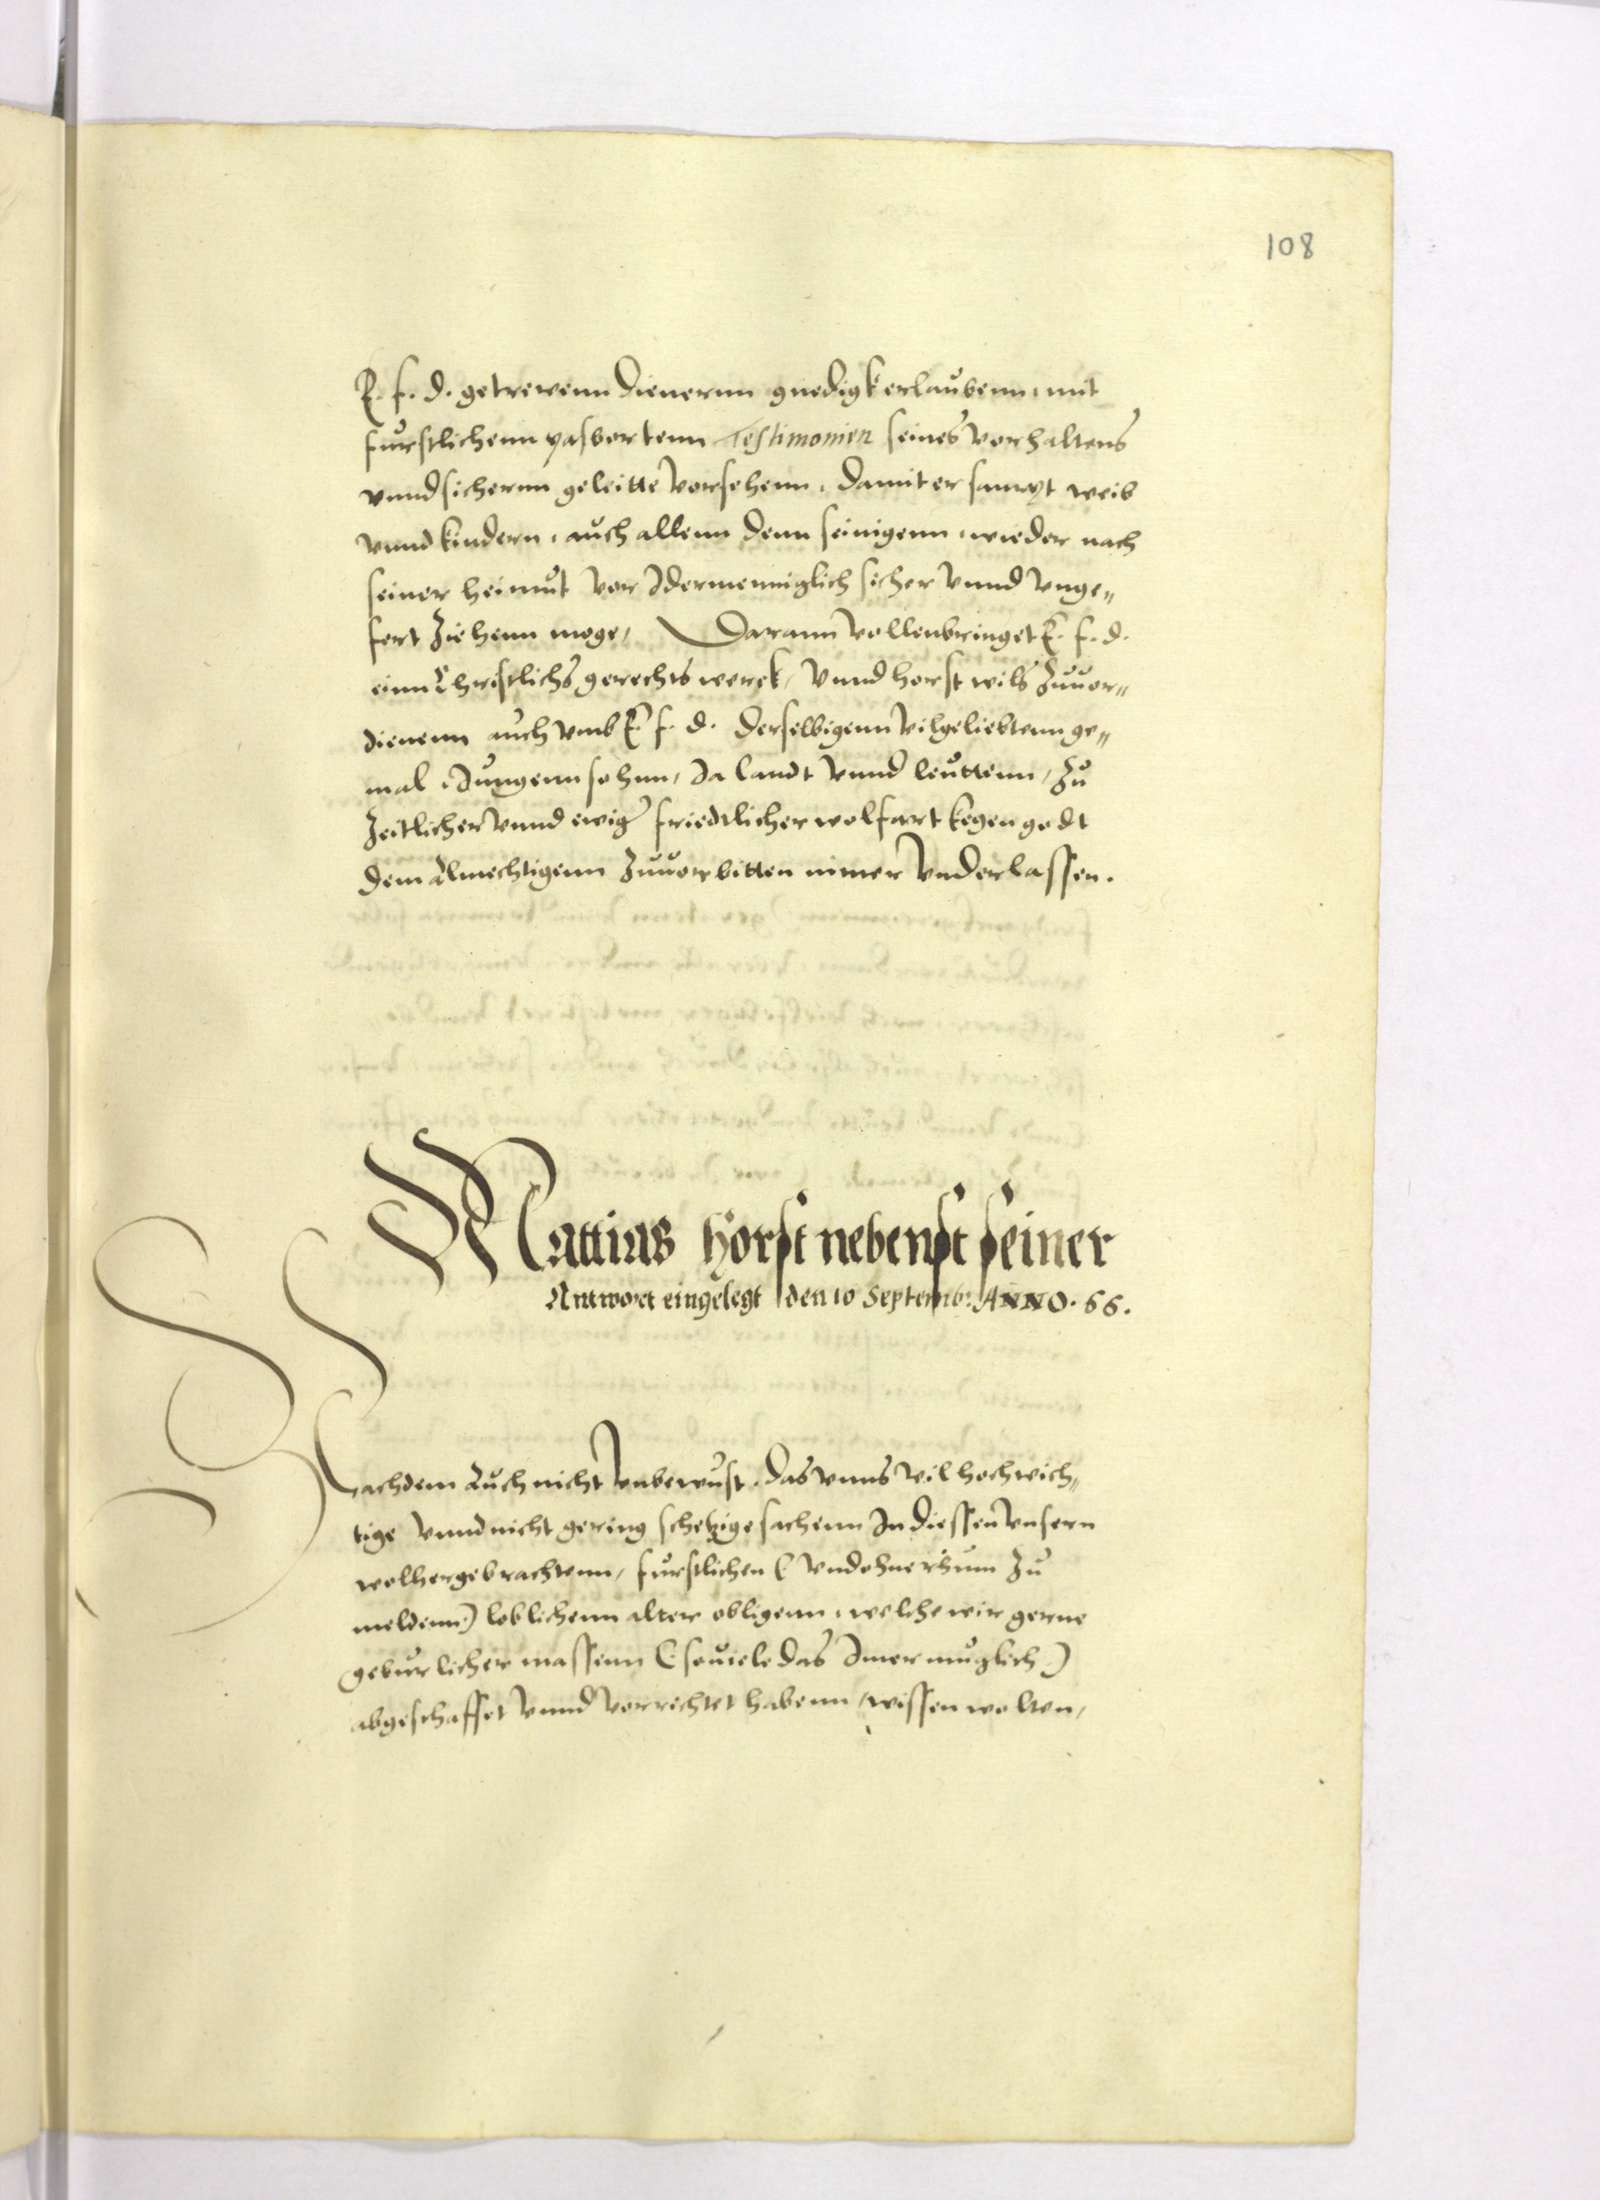 108
E. f. d. getrewenn dienernn gnedigk erlaubenn, mit
furstlichenn pasbortenn Testimonien seines vorhaltens
vnnd sichernn geleitte vorsehenn, damit er sampt weib
vnnd kindern, auch allenn denn seinigenn, wieder nach
seiner heimut vor Idermenniglich sicher vnnd vnge„
fert ziehenn moge, Darann vollenbringet E. f. d.
einn Christlichs gerechts werck, vnnd horst wils zuuor„
dienenn auch vmb E. f. d. derselbigenn vilgeliebtenn ge„
mal, Jungenn sohnn, Ja landt vnnd leuttenn, zu
zeitlicher vnnd ewiger friedtlicher wolfart kegen godt
dem Almechtigenn zuuorbitten nimer vnderlassen.
Mattias Horst nebenst seiner
Antwort eingelegt den 10 Septemb: ANNO. 66.
Nachdem Euch nicht vnbewust, das vnns vil hochwich„
tige vnnd nicht gering schetzige sachenn In diessen vnsern
wolhergebrachtenn, furstlichen (vnd ohne rhum zu
meldenn) loblichenn alter obligenn, welche wir gerne
geburlicher massenn (souiele das Imer muglich)
abgeschaffet vnnd vorrichtet habenn, wissen wolten,